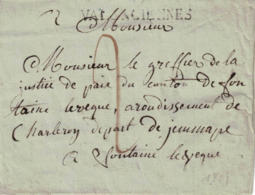 VALENCIENNES
2
Monsieur
Monsieur le greffier de la
justice de paix du canton de fon
taine leveque, arondissement de
Charleroy depart de jemmape
a fontaine leveque